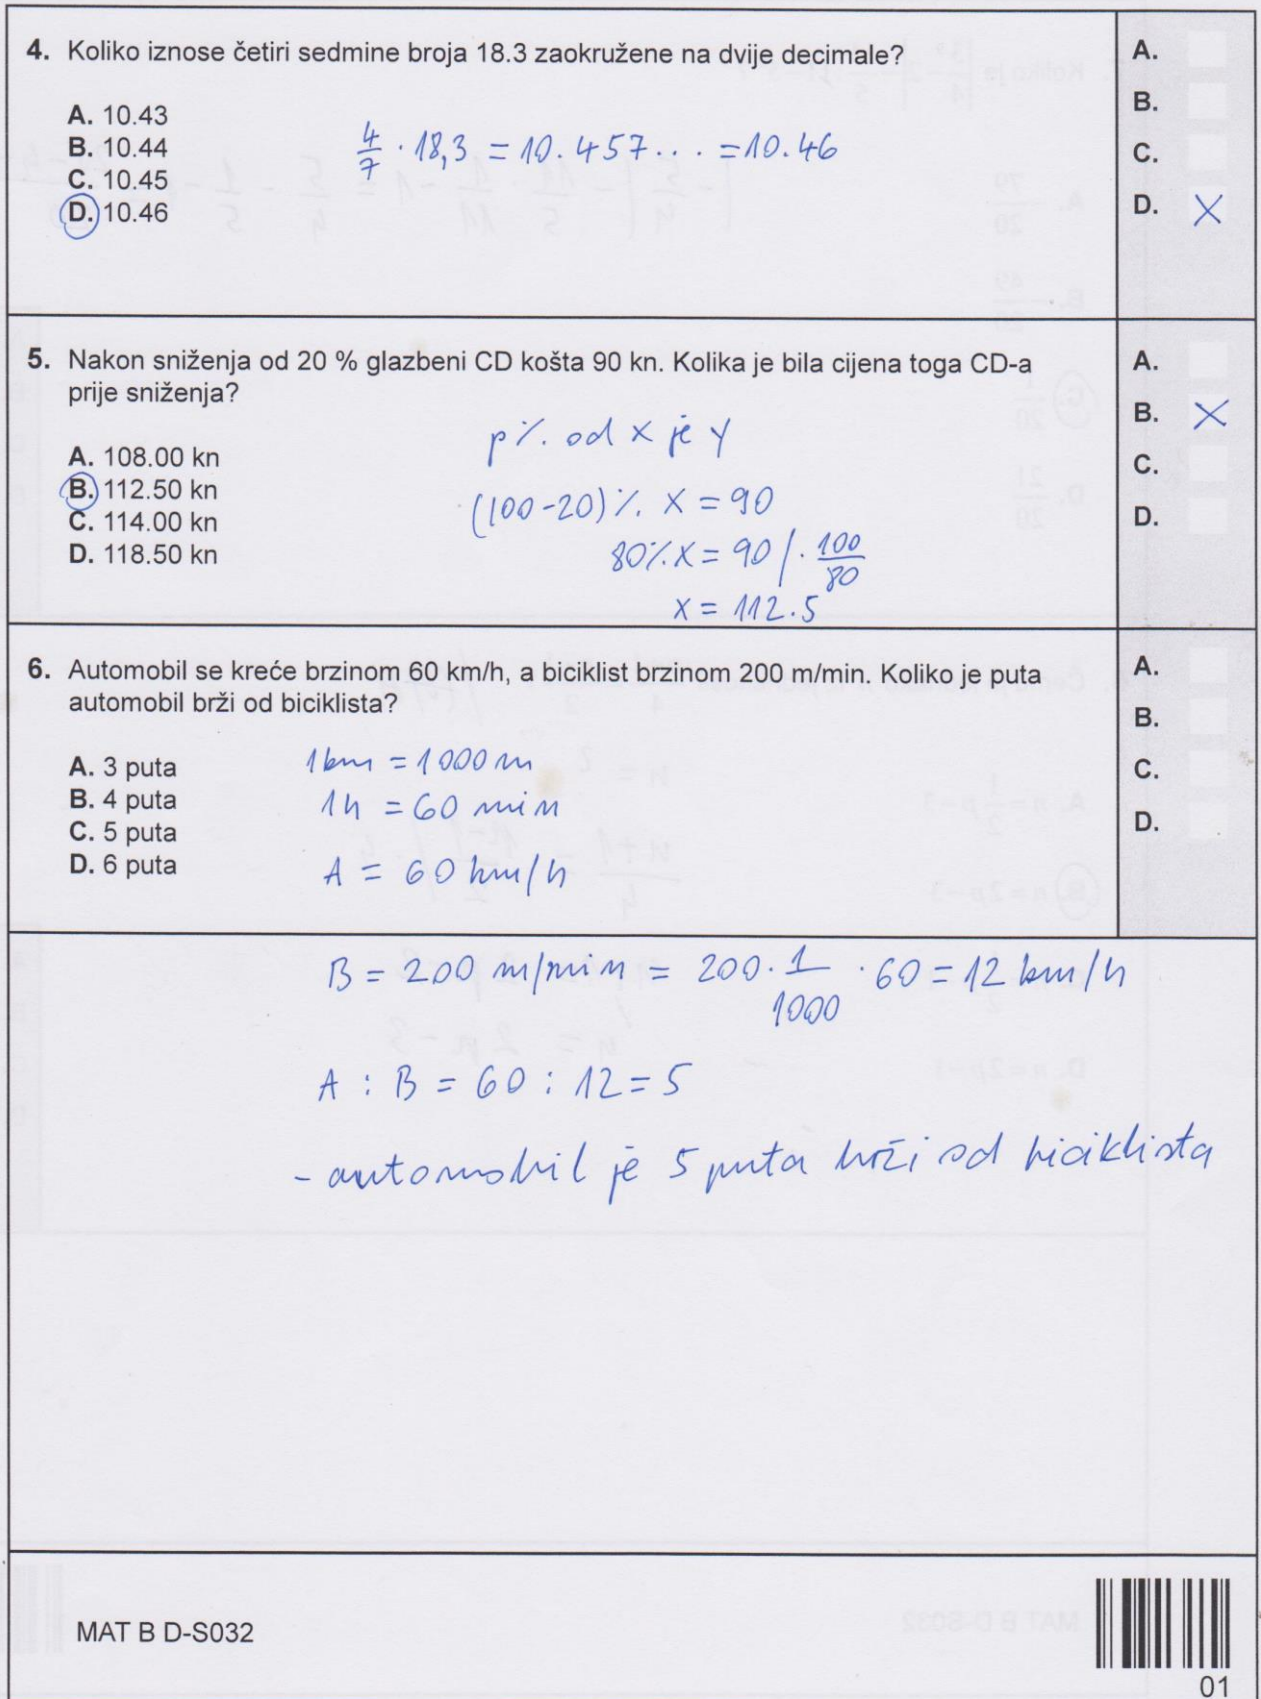 4. Koliko iznose četiri sedmine broja 18.3 zaokružene na dvije decimale?
A. 10.43
B. 10.44
C. 10.45
D. 10.46
4/7 · 18,3 = 10.457... = 10.46
A.
B.
C.
D. X
5. Nakon sniženja od 20 % glazbeni CD košta 90 kn. Kolika je bila cijena toga CD-a
prije sniženja?
A. 108.00 kn
B. 112.50 kn
C. 114.00 kn
D. 118.50 kn
p% od x je y
(100-20)% x = 90
80% x = 90 / · 100/80
x = 112.5
A.
B. X
C.
D.
6. Automobil se kreće brzinom 60 km/h, a biciklist brzinom 200 m/min. Koliko je puta
automobil brži od biciklista?
A. 3 puta
B. 4 puta
C. 5 puta
D. 6 puta
1km = 1000 m
1h = 60 min
A = 60 km/h
A.
B.
C.
D.
B = 200 m/min = 200 · 1/1000 · 60 = 12 km/h
A : B = 60 : 12 = 5
- automobil je 5 puta brži od biciklista
MAT B D-S032
01